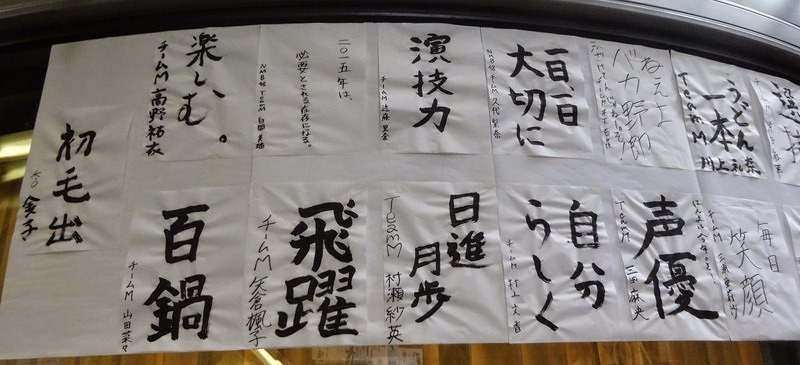 うどん
一本
TeamM 川上礼奈
バカ野郎!
一日一日
大切に
NMB48 チームM 久代梨奈
演技力
チームM 近藤里奈
二〇一五年は、
必要とされる存在になる。
NMB48 TeamM 白間美瑠
楽しむ。
チームM 高野祐衣
初毛出
金子
毎日
笑顔
チームM 三浦亜莉沙
声優
TeamM 三田麻央
自分
らしく
チームM 村上文香
日進
月歩
TeamM 村瀬紗英
飛躍
チームM 矢倉楓子
百鍋
チームM 山田菜々